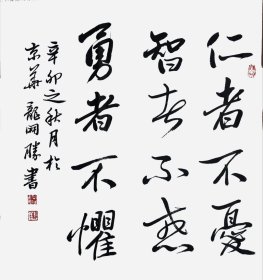 仁者不憂
智者不惑
勇者不懼
辛卯之秋月於
京華龍開勝書